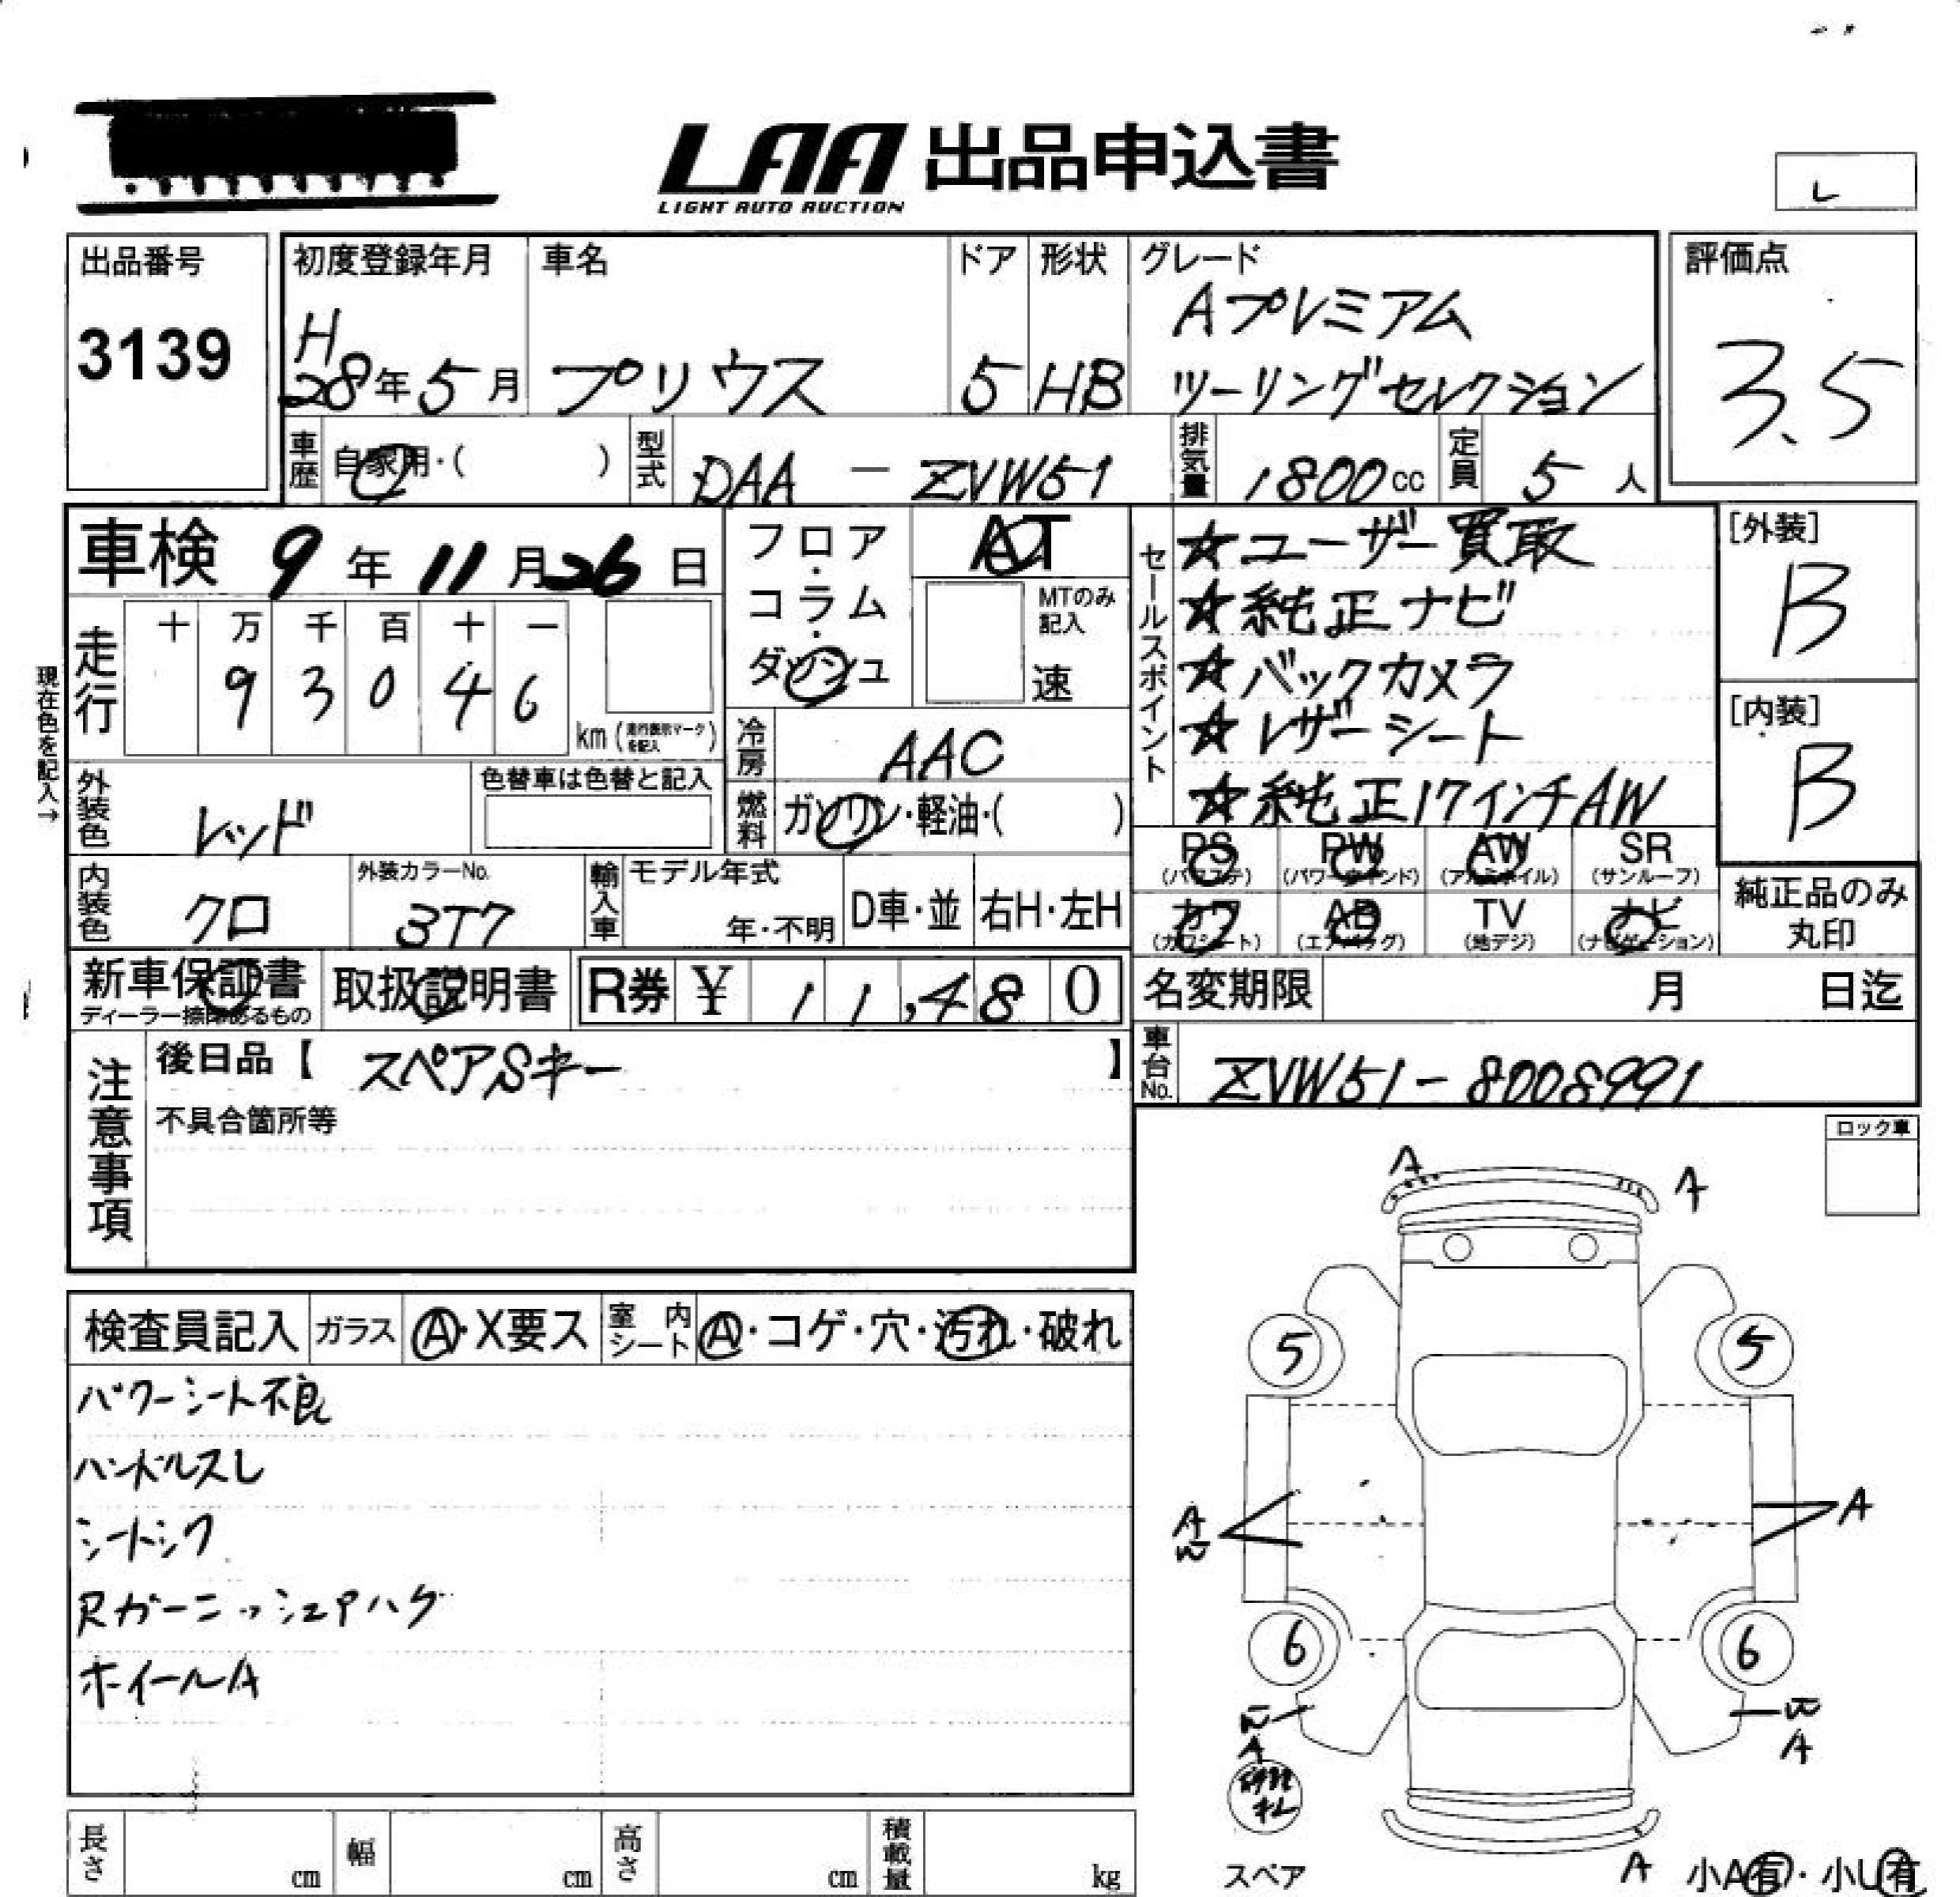 LAA 出品申込書
LIGHT AUTO AUCTION
L
出品番号
3139
初度登録年月
H
28年5月
車名
プリウス
ドア
5
形状
HB
グレード
Aプレミアム
ツーリングセレクション
評価点
3.5
車歴 自家用・( )
型式 DAA - ZVW51
排気量 1800cc
定員 5人
車検 9年11月26日
走行
十 万 千 百 十 一
9 3 0 4 6
km
現在色を記入→
フロア・コラム・ダッシュ
AT
MTのみ記入
速
冷房 AAC
燃料 ガソリン・軽油・( )
セールスポイント
☆ユーザー買取
☆純正ナビ
☆バックカメラ
☆レザーシート
☆純正17インチAW
[外装]
B
[内装]
B
外装色 レッド
色替車は色替と記入
内装色 クロ
外装カラーNo.
3T7
輸入車
モデル年式
年・不明
D車・並
右H・左H
PS (パワステ)
PW (パワーウインド)
AW (アルミホイル)
SR (サンルーフ)
カワ (カワシート)
AB (エアバッグ)
TV (地デジ)
ナビ (ナビゲーション)
純正品のみ丸印
新車保証書
ディーラー捺印あるもの
取扱説明書
R券 ¥ 11,480
名変期限 月 日迄
車台No. ZVW51-8008991
注意事項
後日品【 スペアSキー 】
不具合箇所等
ロック車
検査員記入
ガラス A・X要ス
室内シート A・コゲ・穴・汚れ・破れ
パワーシート不良
ハンドルスレ
シートシワ
RガーニッシュPハゲ
ホイールA
A
A
5
5
A
A
6
6
A
A
スペア
A
小A有・小U有
長さ cm
幅 cm
高さ cm
積載量 kg